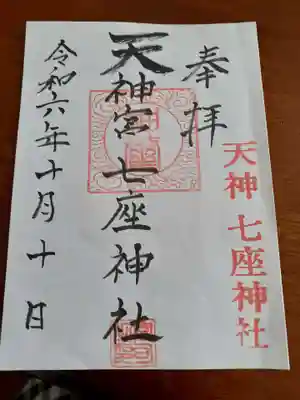 奉拝
天神 七座神社
天神宮 七座神社
令和六年十月十日